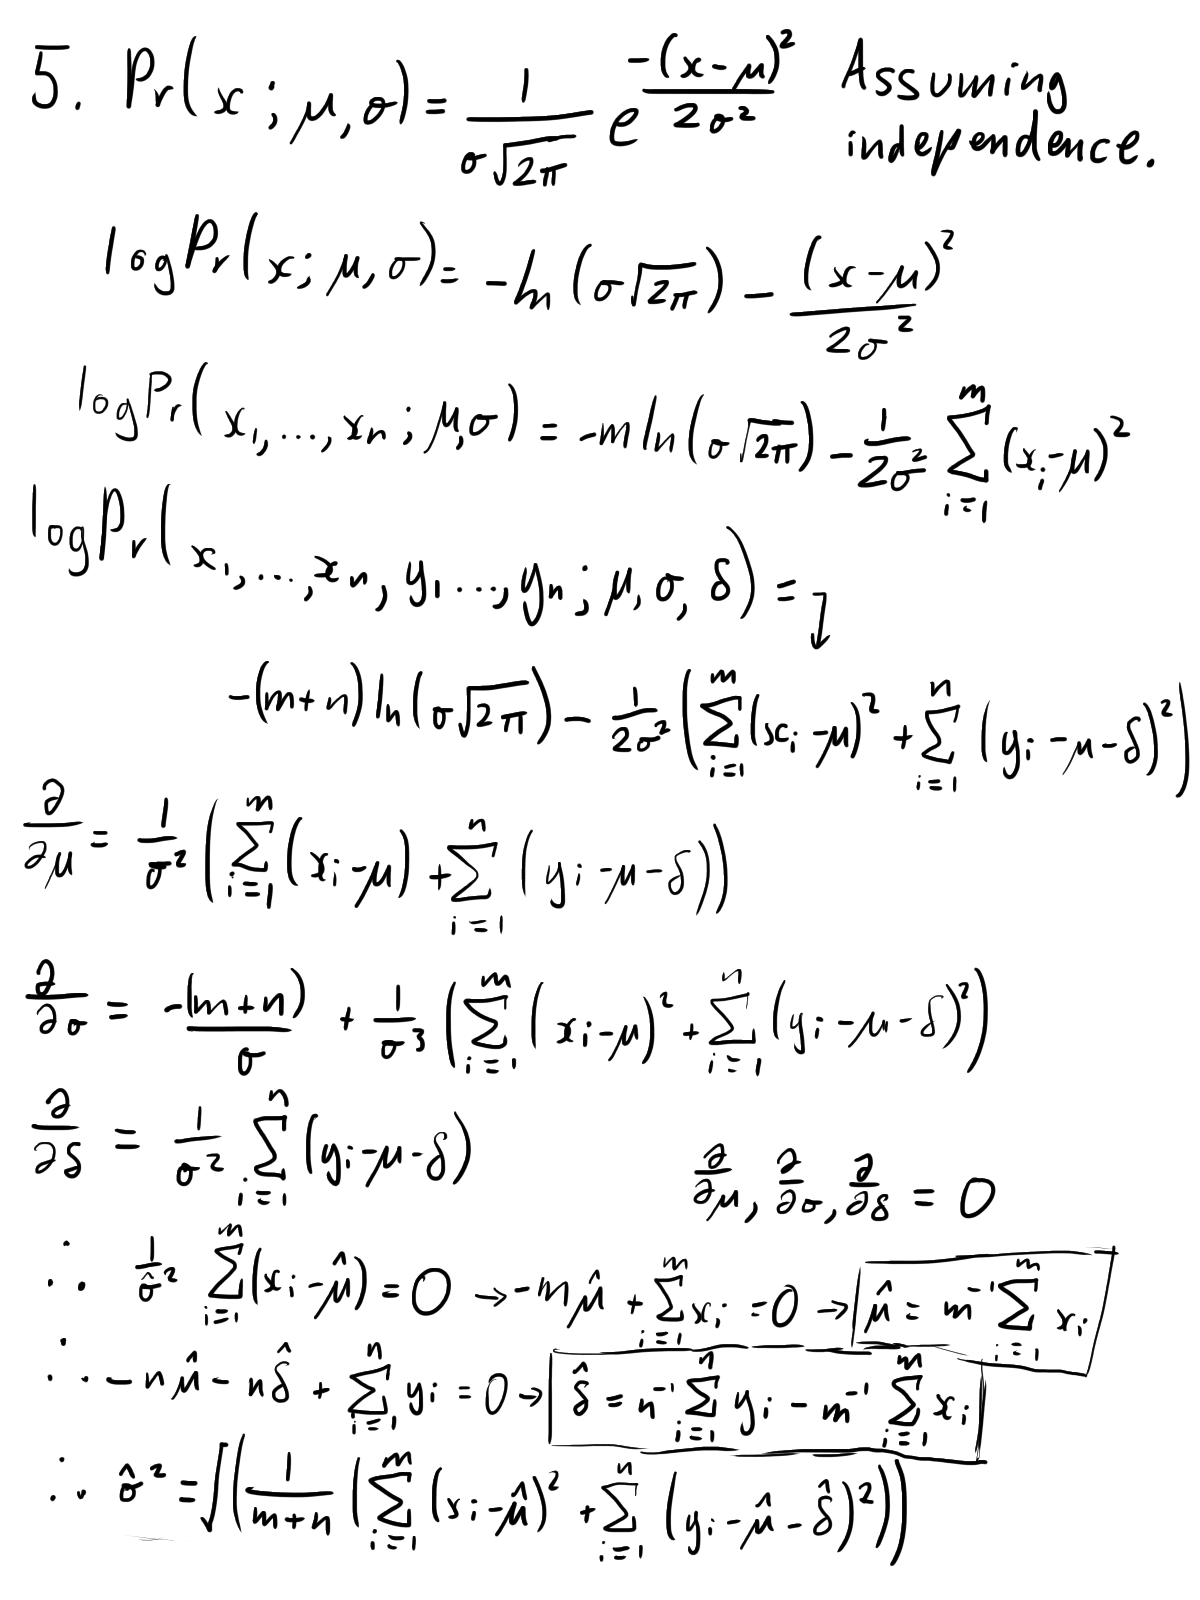 5. Pr(x; μ, σ) = 1/(σ√(2π)) e^(-(x-μ)²/(2σ²)) Assuming independence.
log Pr(x; μ, σ) = -ln(σ√(2π)) - (x-μ)²/(2σ²)
log Pr(x₁, ..., xₙ; μ, σ) = -m ln(σ√(2π)) - 1/(2σ²) ∑_{i=1}^{m} (xᵢ-μ)²
log Pr(x₁, ..., xₙ, y₁ ..., yₙ; μ, σ, δ) = ↴
-(m+n) ln(σ√(2π)) - 1/(2σ²) (∑_{i=1}^{m} (xᵢ-μ)² + ∑_{i=1}^{n} (yᵢ-μ-δ)²)
∂/∂μ = 1/σ² (∑_{i=1}^{m} (xᵢ-μ) + ∑_{i=1}^{n} (yᵢ-μ-δ))
∂/∂σ = -(m+n)/σ + 1/σ³ (∑_{i=1}^{m} (xᵢ-μ)² + ∑_{i=1}^{n} (yᵢ-μ-δ)²)
∂/∂δ = 1/σ² ∑_{i=1}^{n} (yᵢ-μ-δ)
∂/∂μ, ∂/∂σ, ∂/∂δ = 0
∴ 1/σ̂² ∑_{i=1}^{m} (xᵢ-μ̂) = 0 → -mμ̂ + ∑_{i=1}^{m} xᵢ = 0 → μ̂ = m⁻¹ ∑_{i=1}^{m} xᵢ
∴ -nμ̂ - nδ̂ + ∑_{i=1}^{n} yᵢ = 0 → δ̂ = n⁻¹ ∑_{i=1}^{n} yᵢ - m⁻¹ ∑_{i=1}^{m} xᵢ
∴ σ̂² = √(1/(m+n) (∑_{i=1}^{m} (xᵢ-μ̂)² + ∑_{i=1}^{n} (yᵢ-μ̂-δ̂)²))